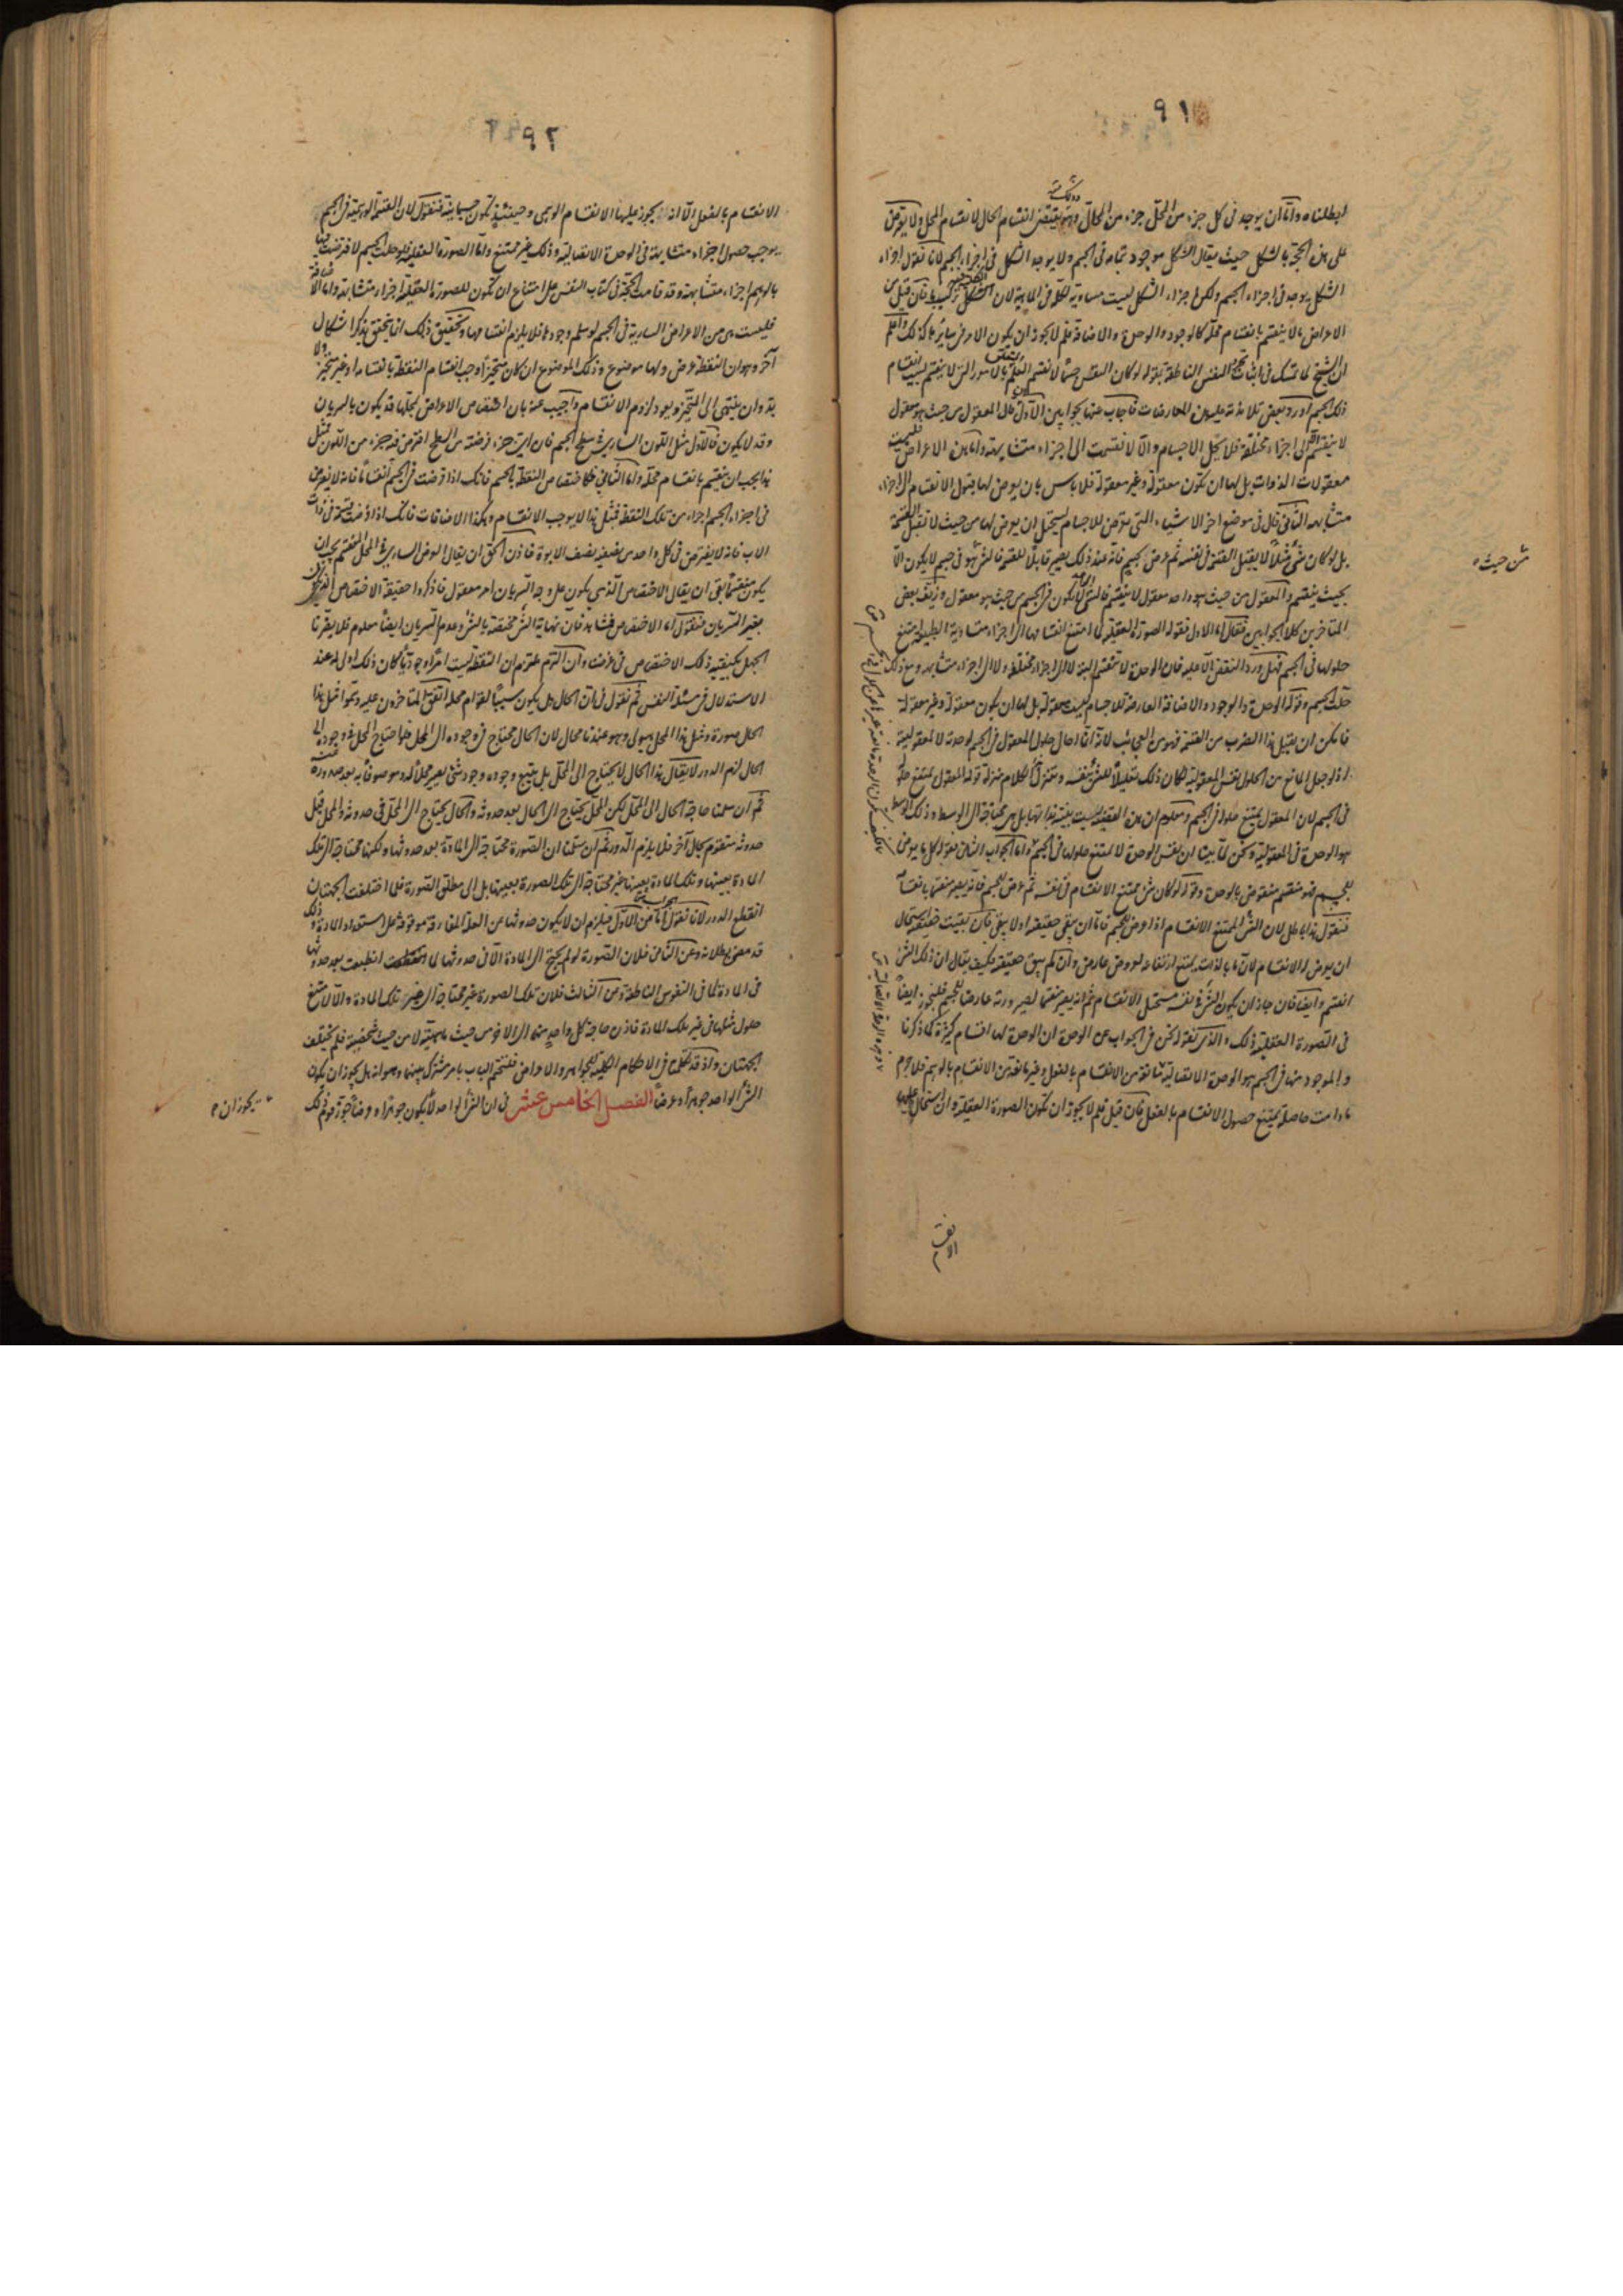 ٩١
ابطلناه واما ان يوجد فى كل جزء من المحل جزء من الحال وهو يقتضى انقسام الحال لانقسام المحل ولا يعترض
على هذه الحجة بالشكل حيث يقال الشكل موجود بتمامه فى الجسم ولا يوجد الشكل فى اجزاء الجسم لانا نقول اجزاء
الشكل يوجد فى اجزاء الجسم ولكن اجزاء الشكل ليست مساوية لكله فى الماهية لان الشكل فان قيل من
الاعراض ما لا ينقسم بانقسام محله كالوجود والوحدة والاضافة فلم لا يجوز ان يكون الامر فى سائرها كذلك واعلم
ان الشيخ لما تمسك فى اثبات تجرد النفس الناطقة بقوله لو كان النفس جسما لانقسم العلم بالامور التى لا ينقسم بسبب انقسام
ذلك الجسم اورد بعض تلامذته عليه هذه المعارضات فاجاب عنها بجوابين الاول قال المعقول من حيث هو معقول
لا ينقسم الى اجزاء مختلفة فلا يحل الاجسام والا لانقسمت الى اجزاء متشابهة واما هذه الاعراض فليست
معقولات الذوات بل لها ان تكون معقولة وغير معقولة فلا باس بان يعرض لها قبول الانقسام الى اجزاء
متشابهة الثانى قال فى موضع اخر الاشياء التى تعرض للاجسام يستحيل ان يعرض لها من حيث لا تقبل القسمة
بل لو كان شئ مثلا لا يقبل القسمة فى نفسه ثم عرض لجسم فانه عند ذلك يصير قابلا للقسمة فالشئ هو فى جسم لا يكون الا
بحيث ينقسم والمعقول من حيث هو واحد معقول لا ينقسم فالشئ لا يكون فى الجسم من حيث هو معقول وزيف بعض
المتاخرين كلا الجوابين فقال اما الاول فقوله الصورة العقلية لما امتنع انقسامها الى اجزاء متشاوية الطبيعة امتنع
حلولها فى الجسم فهل ورد النقض الا عليه فان الوحدة لا تنقسم البتة لا الى اجزاء مختلفة ولا الى اجزاء متشابهة ومع ذلك
حلت الجسم وقوله الوحدة والوجود والاضافة العارضة للاجسام ليست معقولة بل لها ان يكون معقولة وغير معقولة
فامكن ان يقبل هذا الضرب من القسمة فهو من العجائب لانه انما احال حلول المعقول فى الجسم لوحدته لا لمعقوليته
اذ لو جعل المانع من الحلول نفس المعقولية لكان ذلك تعليلا للشئ بنفسه
فى الجسم لان المعقول يمتنع حلوله فى الجسم ومعلوم ان هذه القضية ليست بينة بذاتها بل هى محتاجة الى الوسط وذلك الوسط
هو الوحدة فى المعقولية ونحن لما بينا ان نفس الوحدة لا يمتنع حلولها فى الجسم واما الجواب الثانى فقوله كل ما يعرض
للجسم فهو منقسم منقوض بالوحدة وقوله لو كان شئ يمتنع الانقسام فى نفسه ثم عرض للجسم فانه يصير منقسما بانقسامه
فنقول هذا باطل لان الشئ الممتنع الانقسام اذا عرض للجسم فاما ان يبقى حقيقته او لا يبقى فان بقيت حقيقته استحال
ان يعرض له الانقسام لان ما بالذات يمتنع ارتفاعه لعروض عارض وان لم يبق حقيقته فكيف يقال ان ذلك الشئ
انقسم وايضا فان جاز ان يكون الشئ فى نفسه مستحيل الانقسام ثم انه يصير منقسما لصيرورته عارضا للجسم فليجز ايضا
فى الصورة العقلية ذلك والذى نقوله نحن فى الجواب عن الوحدة ان الوحدة لها اقسام كثيرة كما ذكرنا
والموجود منها فى الجسم هو الوحدة الاتصالية مانعة من الانقسام بالفعل وغير مانعة من الانقسام بالوهم فلا جرم
ما دامت حاصلة يمتنع حصول الانقسام بالفعل فان قيل فلم لا يجوز ان تكون الصورة العقلية وان استحال عليها
من حيث
٩٢
الانقسام بالفعل الا انه يجوز عليها الانقسام الوهمى وحينئذ تكون جسمانية فنقول لان القسمة الوهمية فى الجسم
يوجب حصول اجزاء متشابهة فى الوحدة الاتصالية وذلك غير ممتنع واما الصورة العقلية فلو حلت الجسم لافترضت فيها
بالوهم اجزاء متشابهة وقد قامت الحجة فى كتاب النفس على امتناع ان تكون للصورة العقلية اجزاء متشابهة واما الاضافة
فليست هى من الاعراض السارية فى الجسم لو سلم وجودها فلا يلزم انقسامها وتحقيق ذلك انما يتحقق بذكر اشكال
آخر وهو ان النقطة عرض ولها موضوع وذلك الموضوع ان كان متحيزا وجب انقسام النقطة بانقسامه او غير متحيز ولا
بد وان ينتهى الى المتحيز ويعود لزوم الانقسام واجيب عنه بان اختصاص الاعراض بمحلها قد يكون بالسريان
وقد لا يكون فالاول مثل اللون السارى فى سطح الجسم فان اى جزء فرضته من السطح افترض فيه جزء من اللون فمثل
هذا يجب ان ينقسم بانقسام محله واما الثانى فكاختصاص النقطة بالجسم فانك اذا فرضت فى الجسم انقساما فانه لا يفترض
فى اجزاء الجسم اجزاء من تلك النقطة فمثل هذا لا يوجب الانقسام وهكذا الاضافات فانك اذا فرضت قسمة فى ذات
الاب فانه لا يفترض فى كل واحد من نصفيه نصف الابوة فاذن الحق ان يقال العرض السارى فى المحل المنقسم يجب ان
يكون منقسما بقى ان يقال الاختصاص الذى يكون على وجه السريان امر معقول فاذكروا حقيقة الاختصاص الذى يكون
بغير السريان فنقول اما الاختصاص فمشاهد فان نهاية الشئ مختصة بالشئ وعدم السريان ايضا معلوم فلا يضرنا
الجهل بكيفية ذلك الاختصاص وان التزم ملتزم ان النقطة ليست امرا وجوديا كان ذلك اولى له عند
الاستدلال فى مسئلة النفس ثم نقول فى ان الحال هل يكون سببا لقوام محله اتفق المتاخرون عليه وسموا مثل هذا
الحال صورة ومثل هذا المحل هيولى وهو عندنا محال لان الحال محتاج فى وجوده الى المحل فلو احتاج المحل فى وجوده الى
الحال لزم الدور لا يقال هذا الحال لا يحتاج الى المحل بل يتبع وجوده وجود شئ يصير محلا له وموصوفا به بعد صدوره
ثم ان سلمنا حاجة الحال الى المحل لكن المحل يحتاج الى الحال بعد حدوثه والحال يحتاج الى المحل فى حدوثه والمحل قبل
حدوثه متقوم بحال آخر فلا يلزم الدور ثم ان سلمنا ان الصورة محتاجة الى المادة بعد حدوثها ولكنها محتاجة الى تلك
المادة بعينها وتلك المادة بعينها غير محتاجة الى تلك الصورة بعينها بل الى مطلق الصورة فلما اختلفت الجهتان
انقطع الدور لانا نقول اما عن الاول فيلزم ان لا يكون حدوثها عن العلة المفارقة موقوفة على استعداد المادة وذلك
قد مضى بطلانه وعن الثانى فلان الصورة لو لم يحتج الى المادة الا فى حدوثها لما انطبعت بعد حدوثها
فى المادة كما فى النفوس الناطقة وعن الثالث فلان تلك الصورة غير محتاجة الى غير تلك المادة والا لامتنع
حلول مثلها فى غير تلك المادة فاذن حاجة كل واحد منهما الى الاخرى من حيث ماهيته لا من حيث شخصيته فلم يختلف
الجهتان واذ قد تكلمنا فى الاحكام الكلية للجواهر والاعراض فلنختم الباب بامر مشترك بينهما وهو انه هل يجوز ان يكون
الشئ الواحد جوهرا وعرضا الفصل الخامس عشر فى ان الشئ الواحد لا يكون جوهرا وعرضا جوز قوم ذلك
يجوز ان